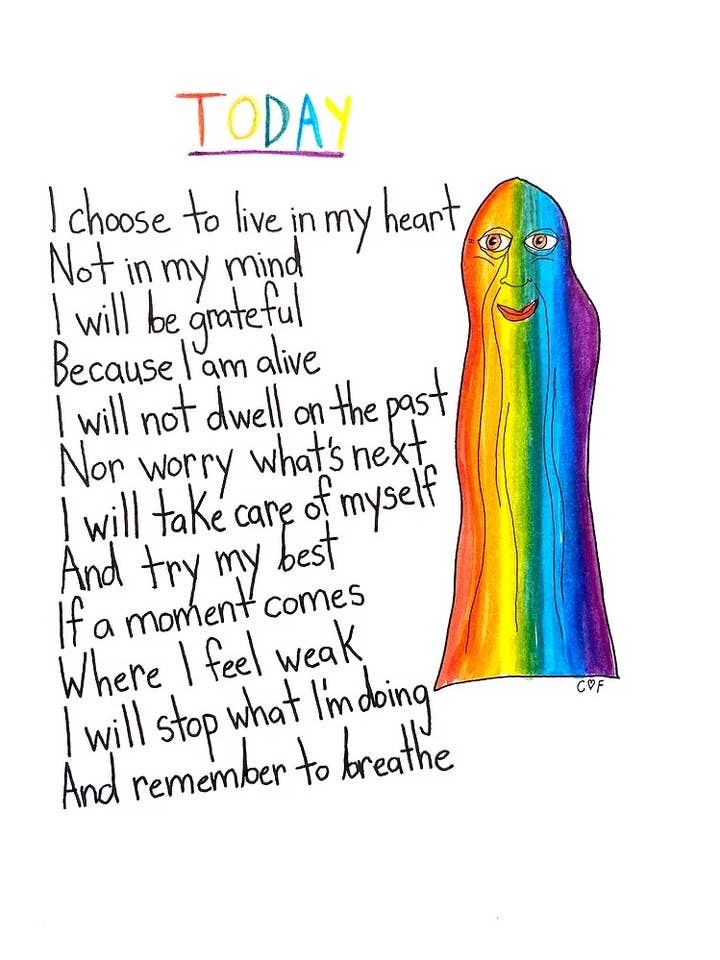 TODAY
I choose to live in my heart
Not in my mind
I will be grateful
Because I am alive
I will not dwell on the past
Nor worry what's next
I will take care of myself
And try my best
If a moment comes
Where I feel weak
I will stop what I'm doing
And remember to breathe
C♡F